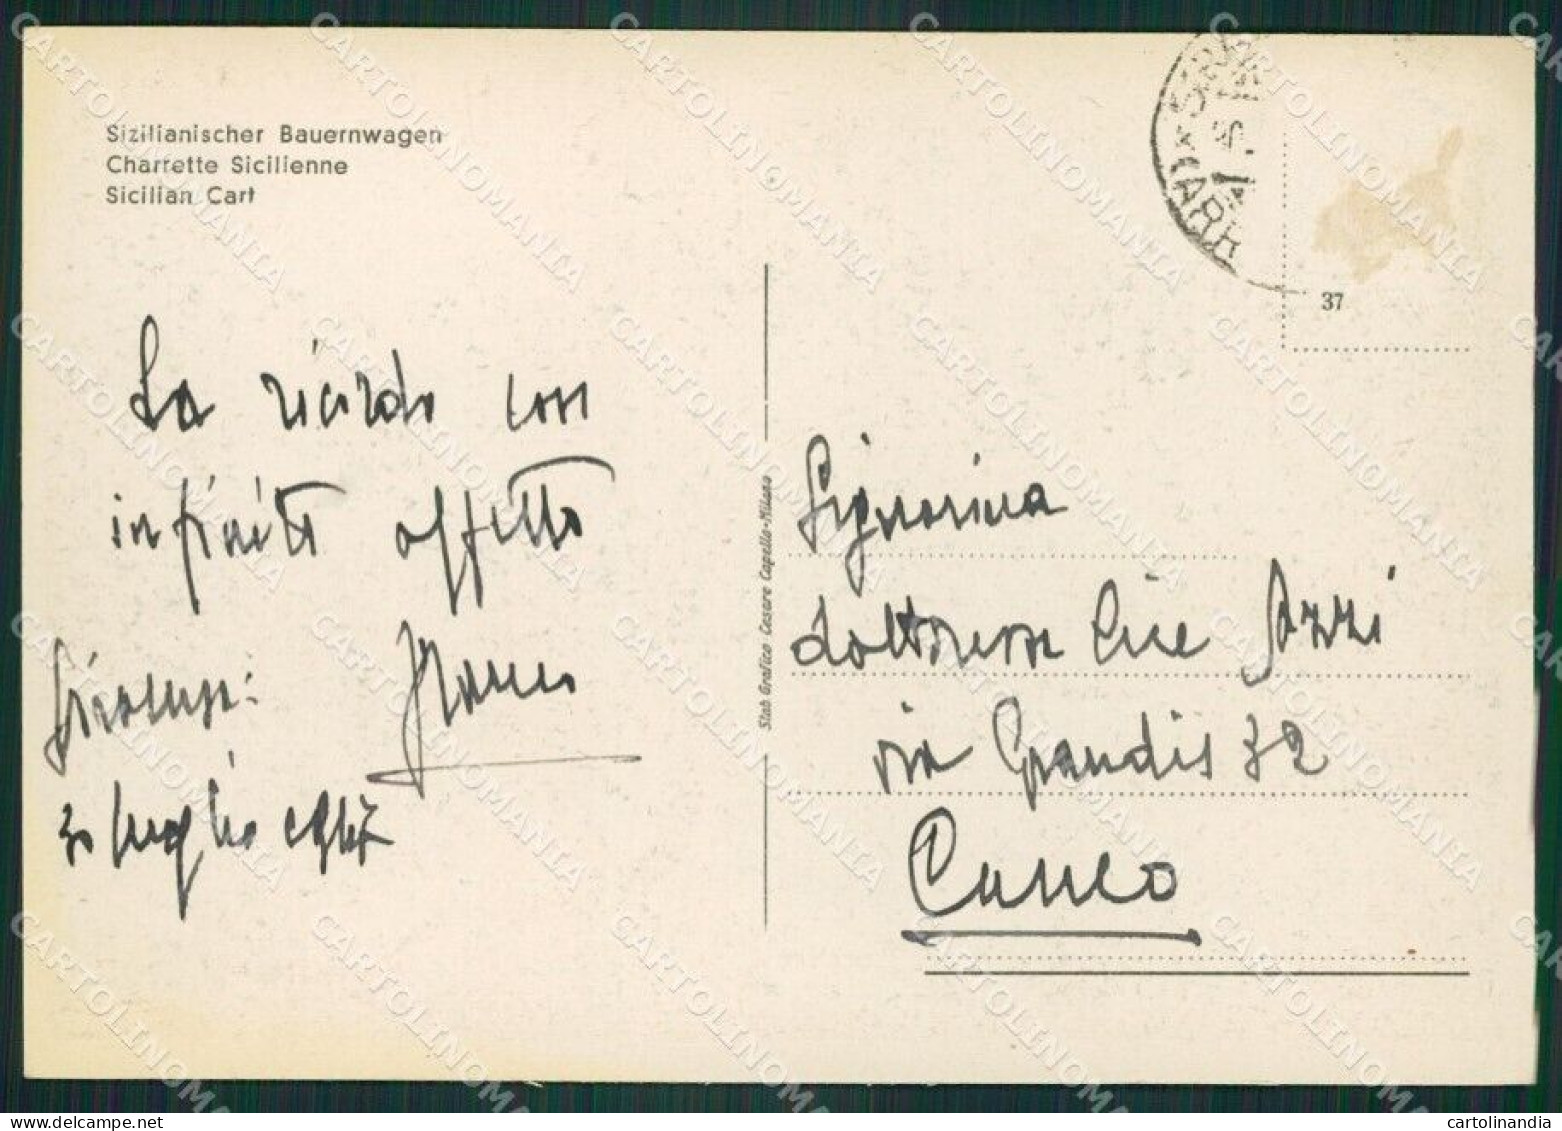 Sizilianischer Bauernwagen
Charrette Sicilienne
Sicilian Cart
La ricordo con
infinito affetto
Siracusa:
30 luglio
37
Stab Grafico Cesare Capello-Milano
Signorina
dottoressa Azzi
via Grandis 32
Cuneo
CARTOLINOMANIA
cartolinandia